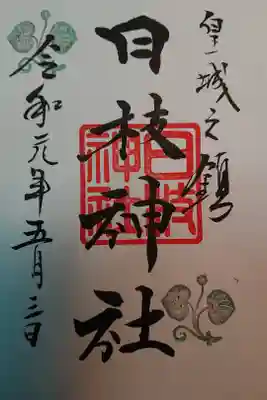 皇城之鎮
日枝神社
日枝神社
令和元年五月三日